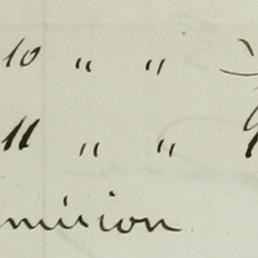 10 " "
11 " "
mission